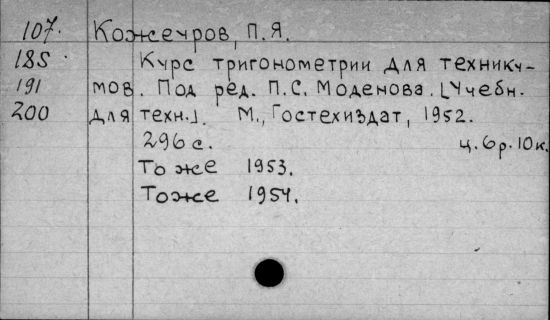 107. Кожеуров, П.Я.
185 Курс тригонометрии для технику-
191 мов. Под ред. П.С. Моденова. [Учебн.
200 для техн.]. М., Гостехиздат, 1952.
296 с. ц. 6 р. 10 к.
То же 1953.
То же 1954.